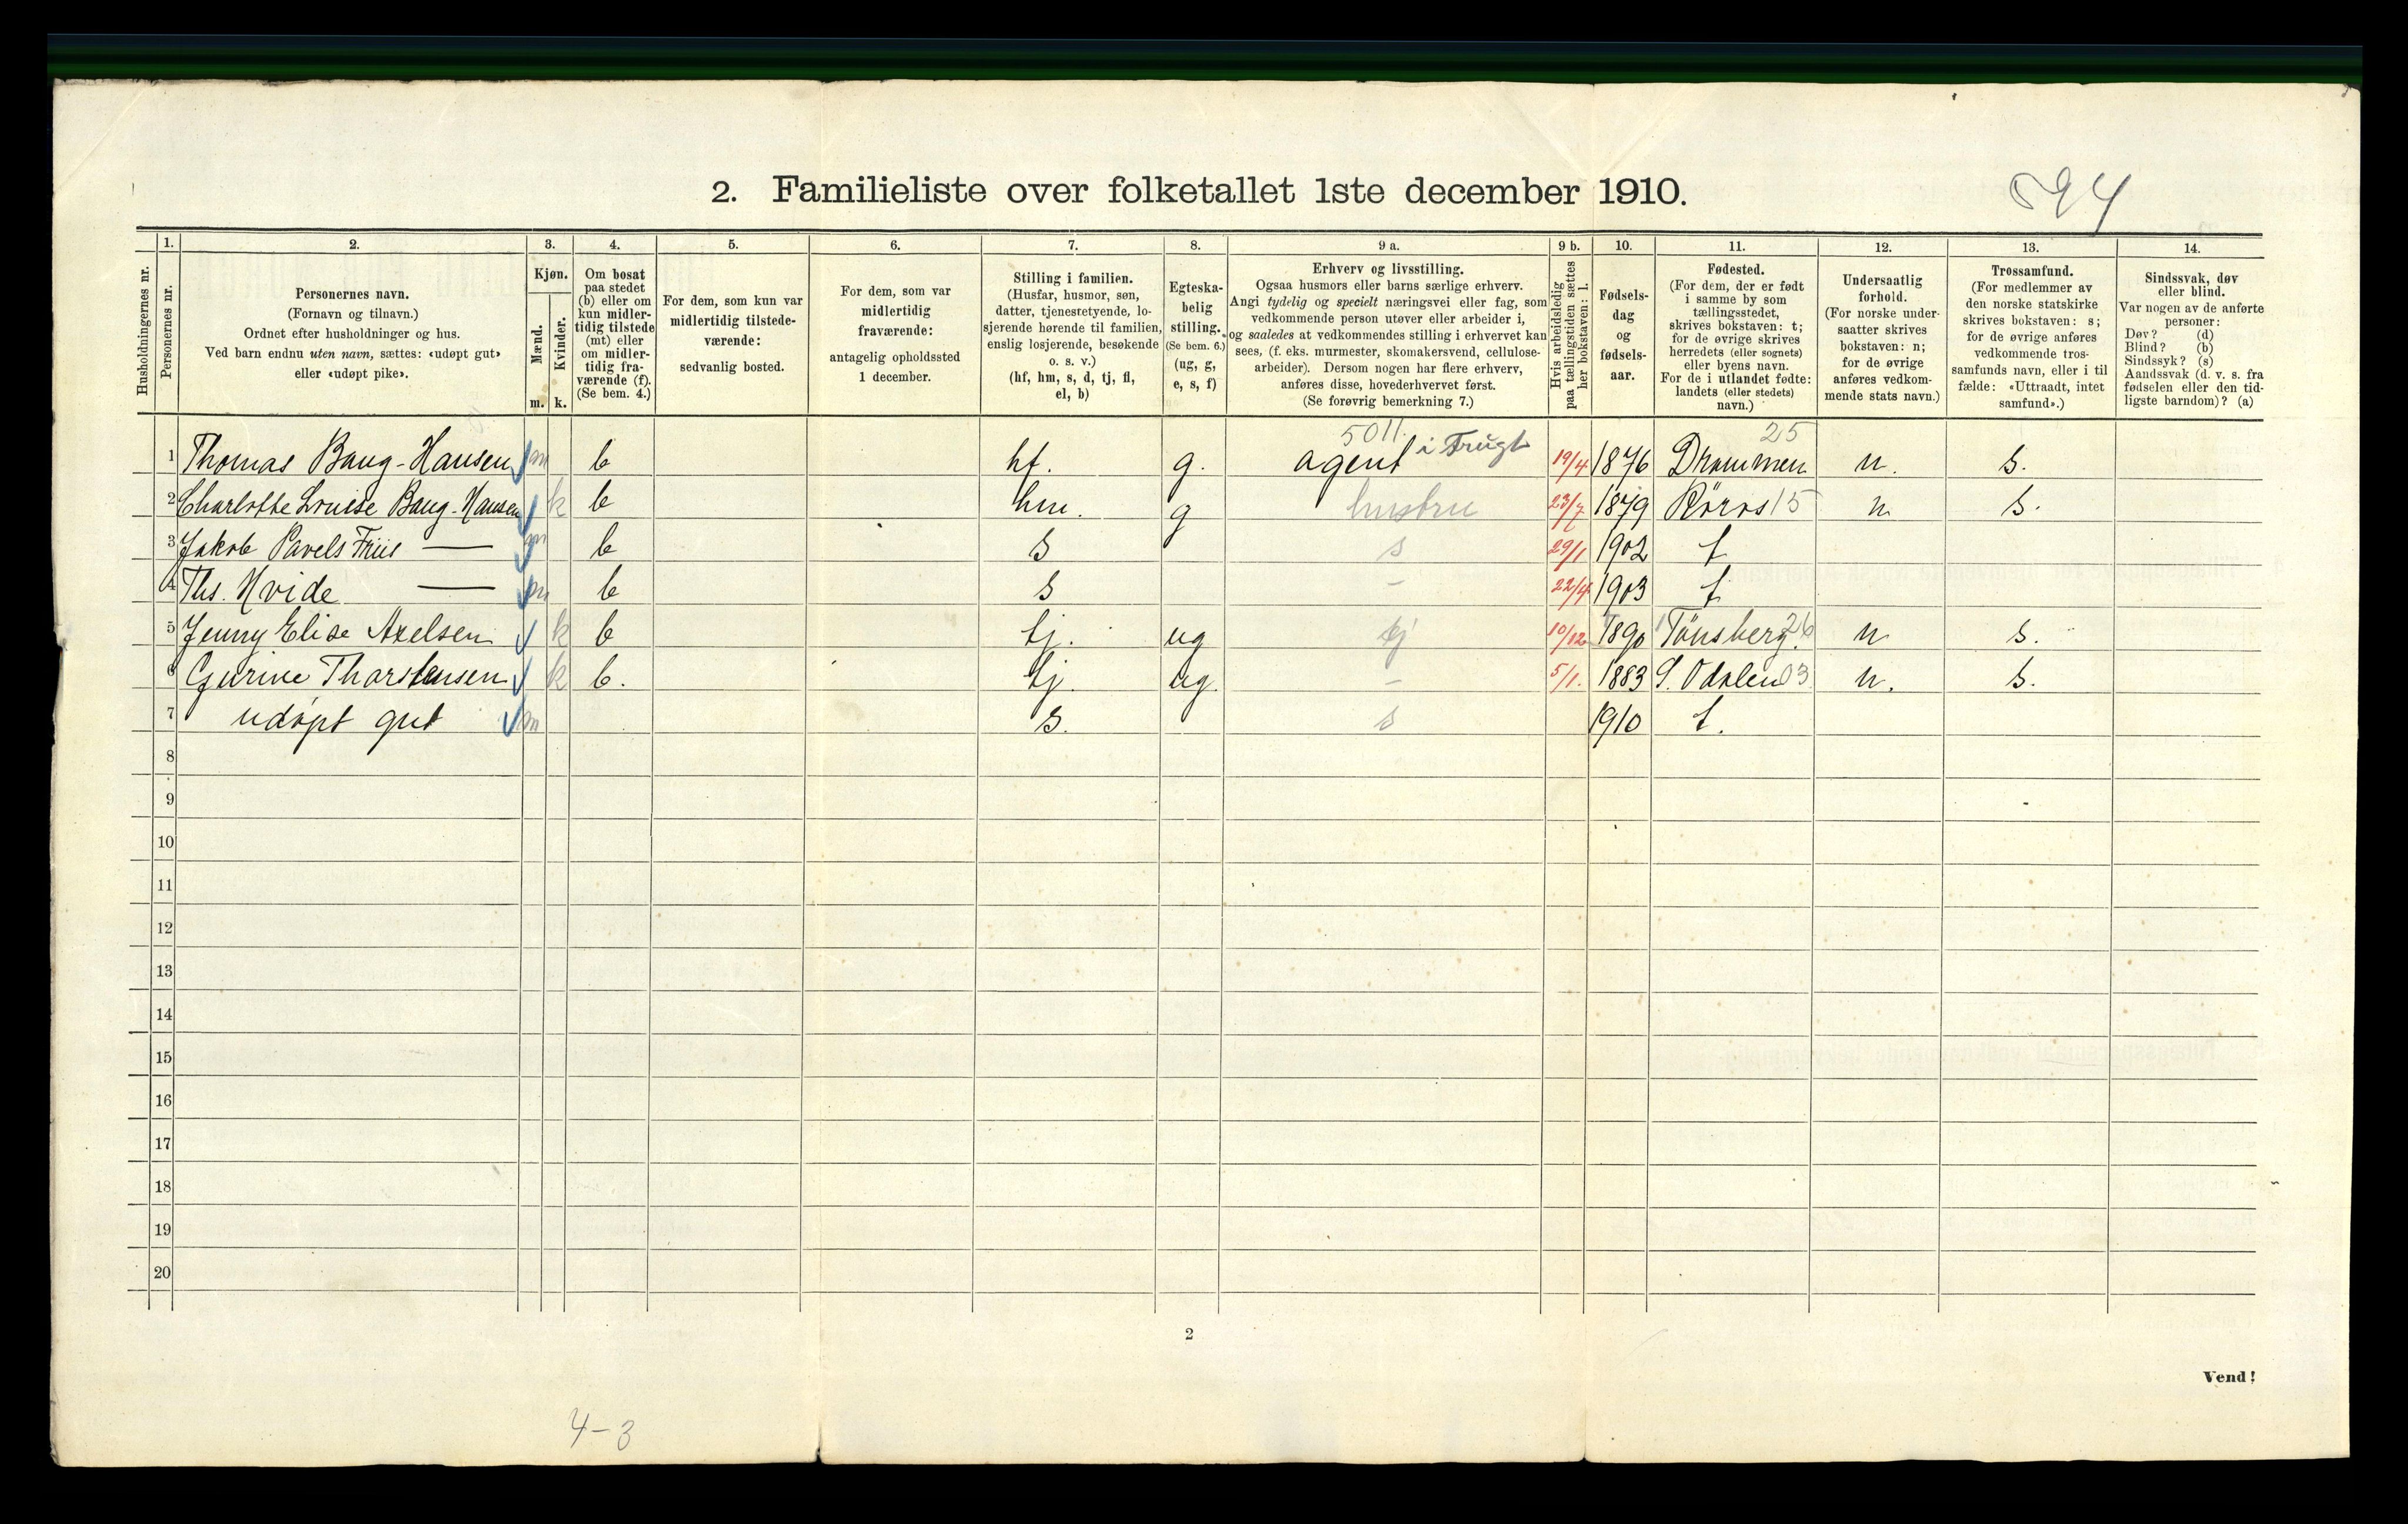 2. Familieliste over folketallet 1ste december 1910.
894
Husholdningernes nr.
1.
Personernes nr.
2.
Personernes navn.
(Fornavn og tilnavn.)
Ordnet efter husholdninger og hus.
Ved barn endnu uten navn, sættes: «udøpt gut»
eller «udøpt pike».
3.
Kjøn.
Mænd.
Kvinder.
m. k.
4.
Om bosat
paa stedet
(b) eller om
kun midler-
tidig tilstede
(mt) eller
om midler-
tidig fra-
værende (f).
(Se bem. 4.)
5.
For dem, som kun var
midlertidig tilstede-
værende:
sedvanlig bosted.
6.
For dem, som var
midlertidig
fraværende:
antagelig opholdssted
1 december.
7.
Stilling i familien.
(Husfar, husmor, søn,
datter, tjenestetyende, lo-
sjerende hørende til familien,
enslig losjerende, besøkende
o. s. v.)
(hf, hm, s, d, tj, fl,
el, b)
8.
Egteska-
belig
stilling.
(Se bem. 6.)
(ug, g,
e, s, f)
9 a.
Erhverv og livsstilling.
Ogsaa husmors eller barns særlige erhverv.
Angi tydelig og specielt næringsvei eller fag, som
vedkommende person utøver eller arbeider i,
og saaledes at vedkommendes stilling i erhvervet kan
sees, (f. eks. murmester, skomakersvend, cellulose-
arbeider). Dersom nogen har flere erhverv,
anføres disse, hovederhvervet først.
(Se forøvrig bemerkning 7.)
9 b.
Hvis arbeidsledig
paa tællingstiden sættes
her bokstaven: l.
10.
Fødsels-
dag
og
fødsels-
aar.
11.
Fødested.
(For dem, der er født
i samme by som
tællingsstedet,
skrives bokstaven: t;
for de øvrige skrives
herredets (eller sognets)
eller byens navn.
For de i utlandet fødte:
landets (eller stedets)
navn.)
12.
Undersaatlig
forhold.
(For norske under-
saatter skrives
bokstaven: n;
for de øvrige
anføres vedkom-
mende stats navn.)
13.
Trossamfund.
(For medlemmer av
den norske statskirke
skrives bokstaven: s;
for de øvrige anføres
vedkommende tros-
samfunds navn, eller i til
fælde: «Uttraadt, intet
samfund».)
14.
Sindssvak, døv
eller blind.
Var nogen av de anførte
personer:
Døv? (d)
Blind? (b)
Sindssyk? (s)
Aandssvak (d. v. s. fra
fødselen eller den tid-
ligste barndom)? (a)
5011. 25
1 Thomas Baug-Hansen m b hf. g. agent i Frugt 19/4 1876 Drammen n. s.
2 Charlotte Louise Baug-Hansen k b hm. g hustru 23/7 1879 Röros 15 n s.
3 Jakob Pavels Friis — m b s s 29/1 1902 t
4 Ths. Hvide — m b s – 22/4 1903 t
5 Jenny Elise Axelsen k b tj. ug tj 10/12 1890 Tönsberg. 26 n s.
6 Gurine Thorstensen k b. tj. ug. – 5/1. 1883 S. Odalen 03 n. s.
7 udöpt gut m s. s 1910 t.
8
9
10
11
12
13
14
15
16
17
18
19
20
2
Vend!
4-3